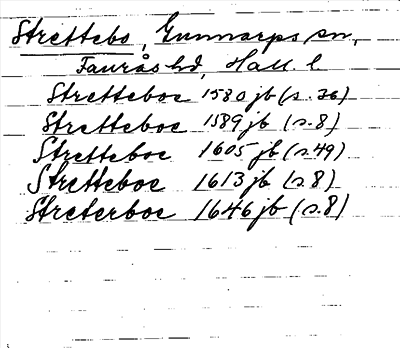 Strettebo, Gunnarps sn,
Fauråshd, Hall. l.
Stretteboe 1580 jb (s. 26)
Stretteboe 1589 jb (s. 8)
Stretteboe 1605 jb (s. 49)
Stretteboe 1613 jb (s. 8)
Streterboe 1646 jb (s. 8)